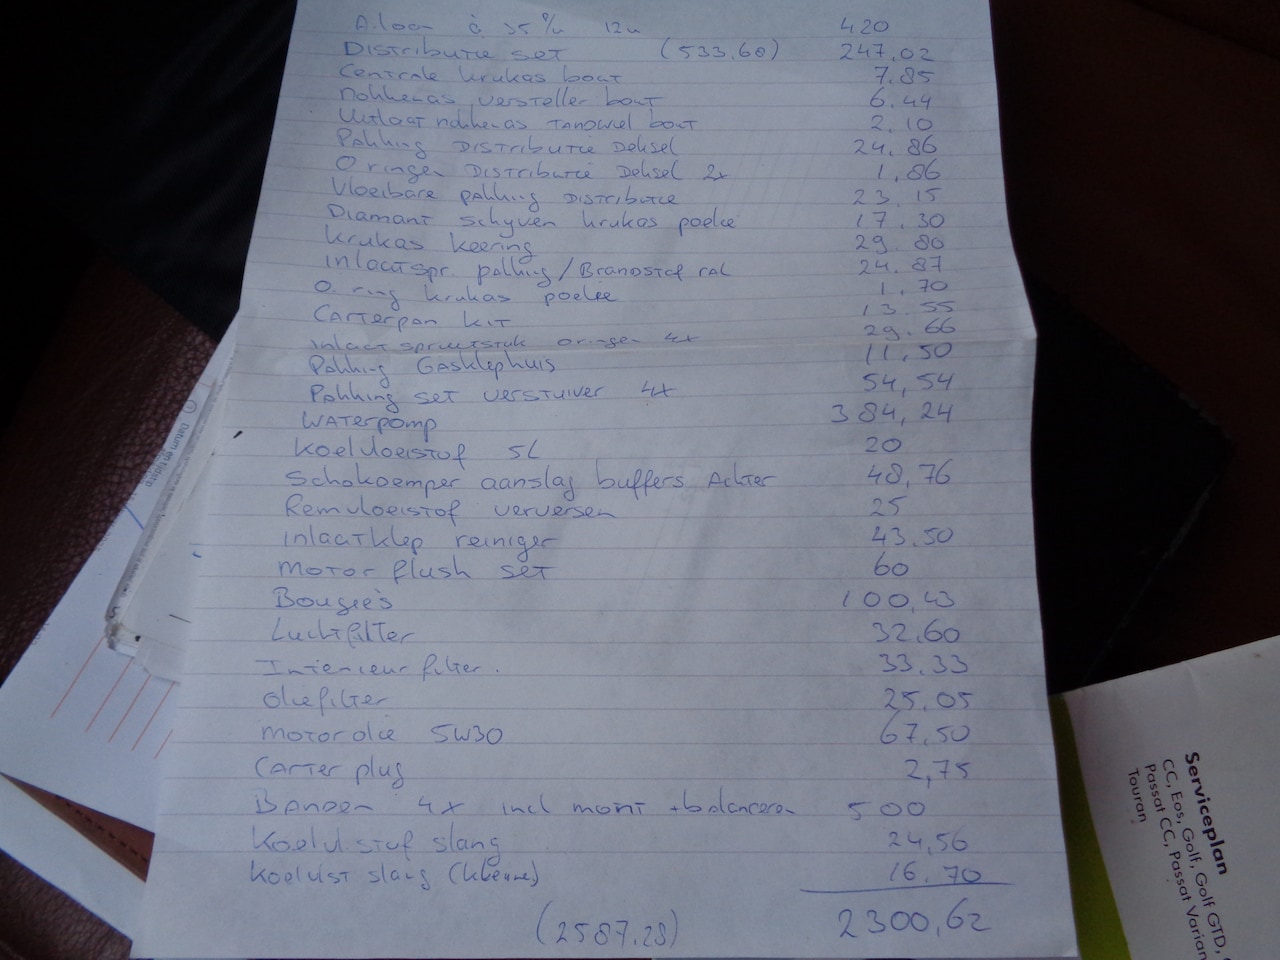 A.loon à 35 % 12u 420
Distributie set (533,60) 247,02
Centrale krukas bout 7.85
nokkenas versteller bout 6.44
Uitlaat nokkenas tandwiel bout 2.10
Pakking Distributie Deksel 24,86
O ringen Distributie Deksel 2x 1,86
Vloeibare pakking Distributie 23.15
Diamant schyven krukas poelie 17.30
krukas keering 29.80
inlaatspr. pakking/Brandstof rail 24.87
O. ring krukas poelie 1,70
Carterpan kit 13.55
inlaat spruitstuk oringen 4x 29.66
Pakking Gasklephuis 11,50
Pakking set verstuiver 4x 54,54
Waterpomp 384,24
Koelvloeistof 5L 20
Schokdemper aanslag buffers Achter 48,76
Remvloeistof verversen 25
inlaatklep reiniger 43.50
motor flush set 60
Bougie's 100,43
Luchtfilter 32.60
Interieur filter. 33.33
oliefilter 25.05
motorolie 5W30 67,50
Carter plug 2,75
Banden 4x incl mont + balanceren 500
Koelvl.stof slang 24,56
Koelvlst slang (kleine) 16.70
(2587.28) 2300,62
Datum en tijdstip
Serviceplan
CC, Eos, Golf, Golf GTD,
Passat CC, Passat Varian
Touran